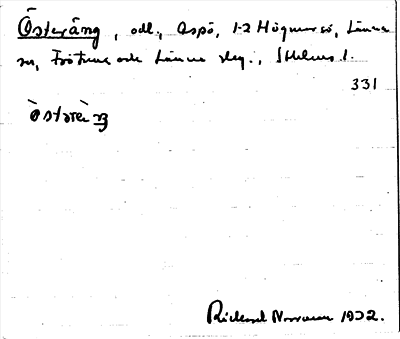 Österäng, odl., Aspö, 1-2 Högmarsö, Länna
sn, Frötuna och Länna skg., Sthlms l.
331
òstərèŋ
Rickard Norman 1932.